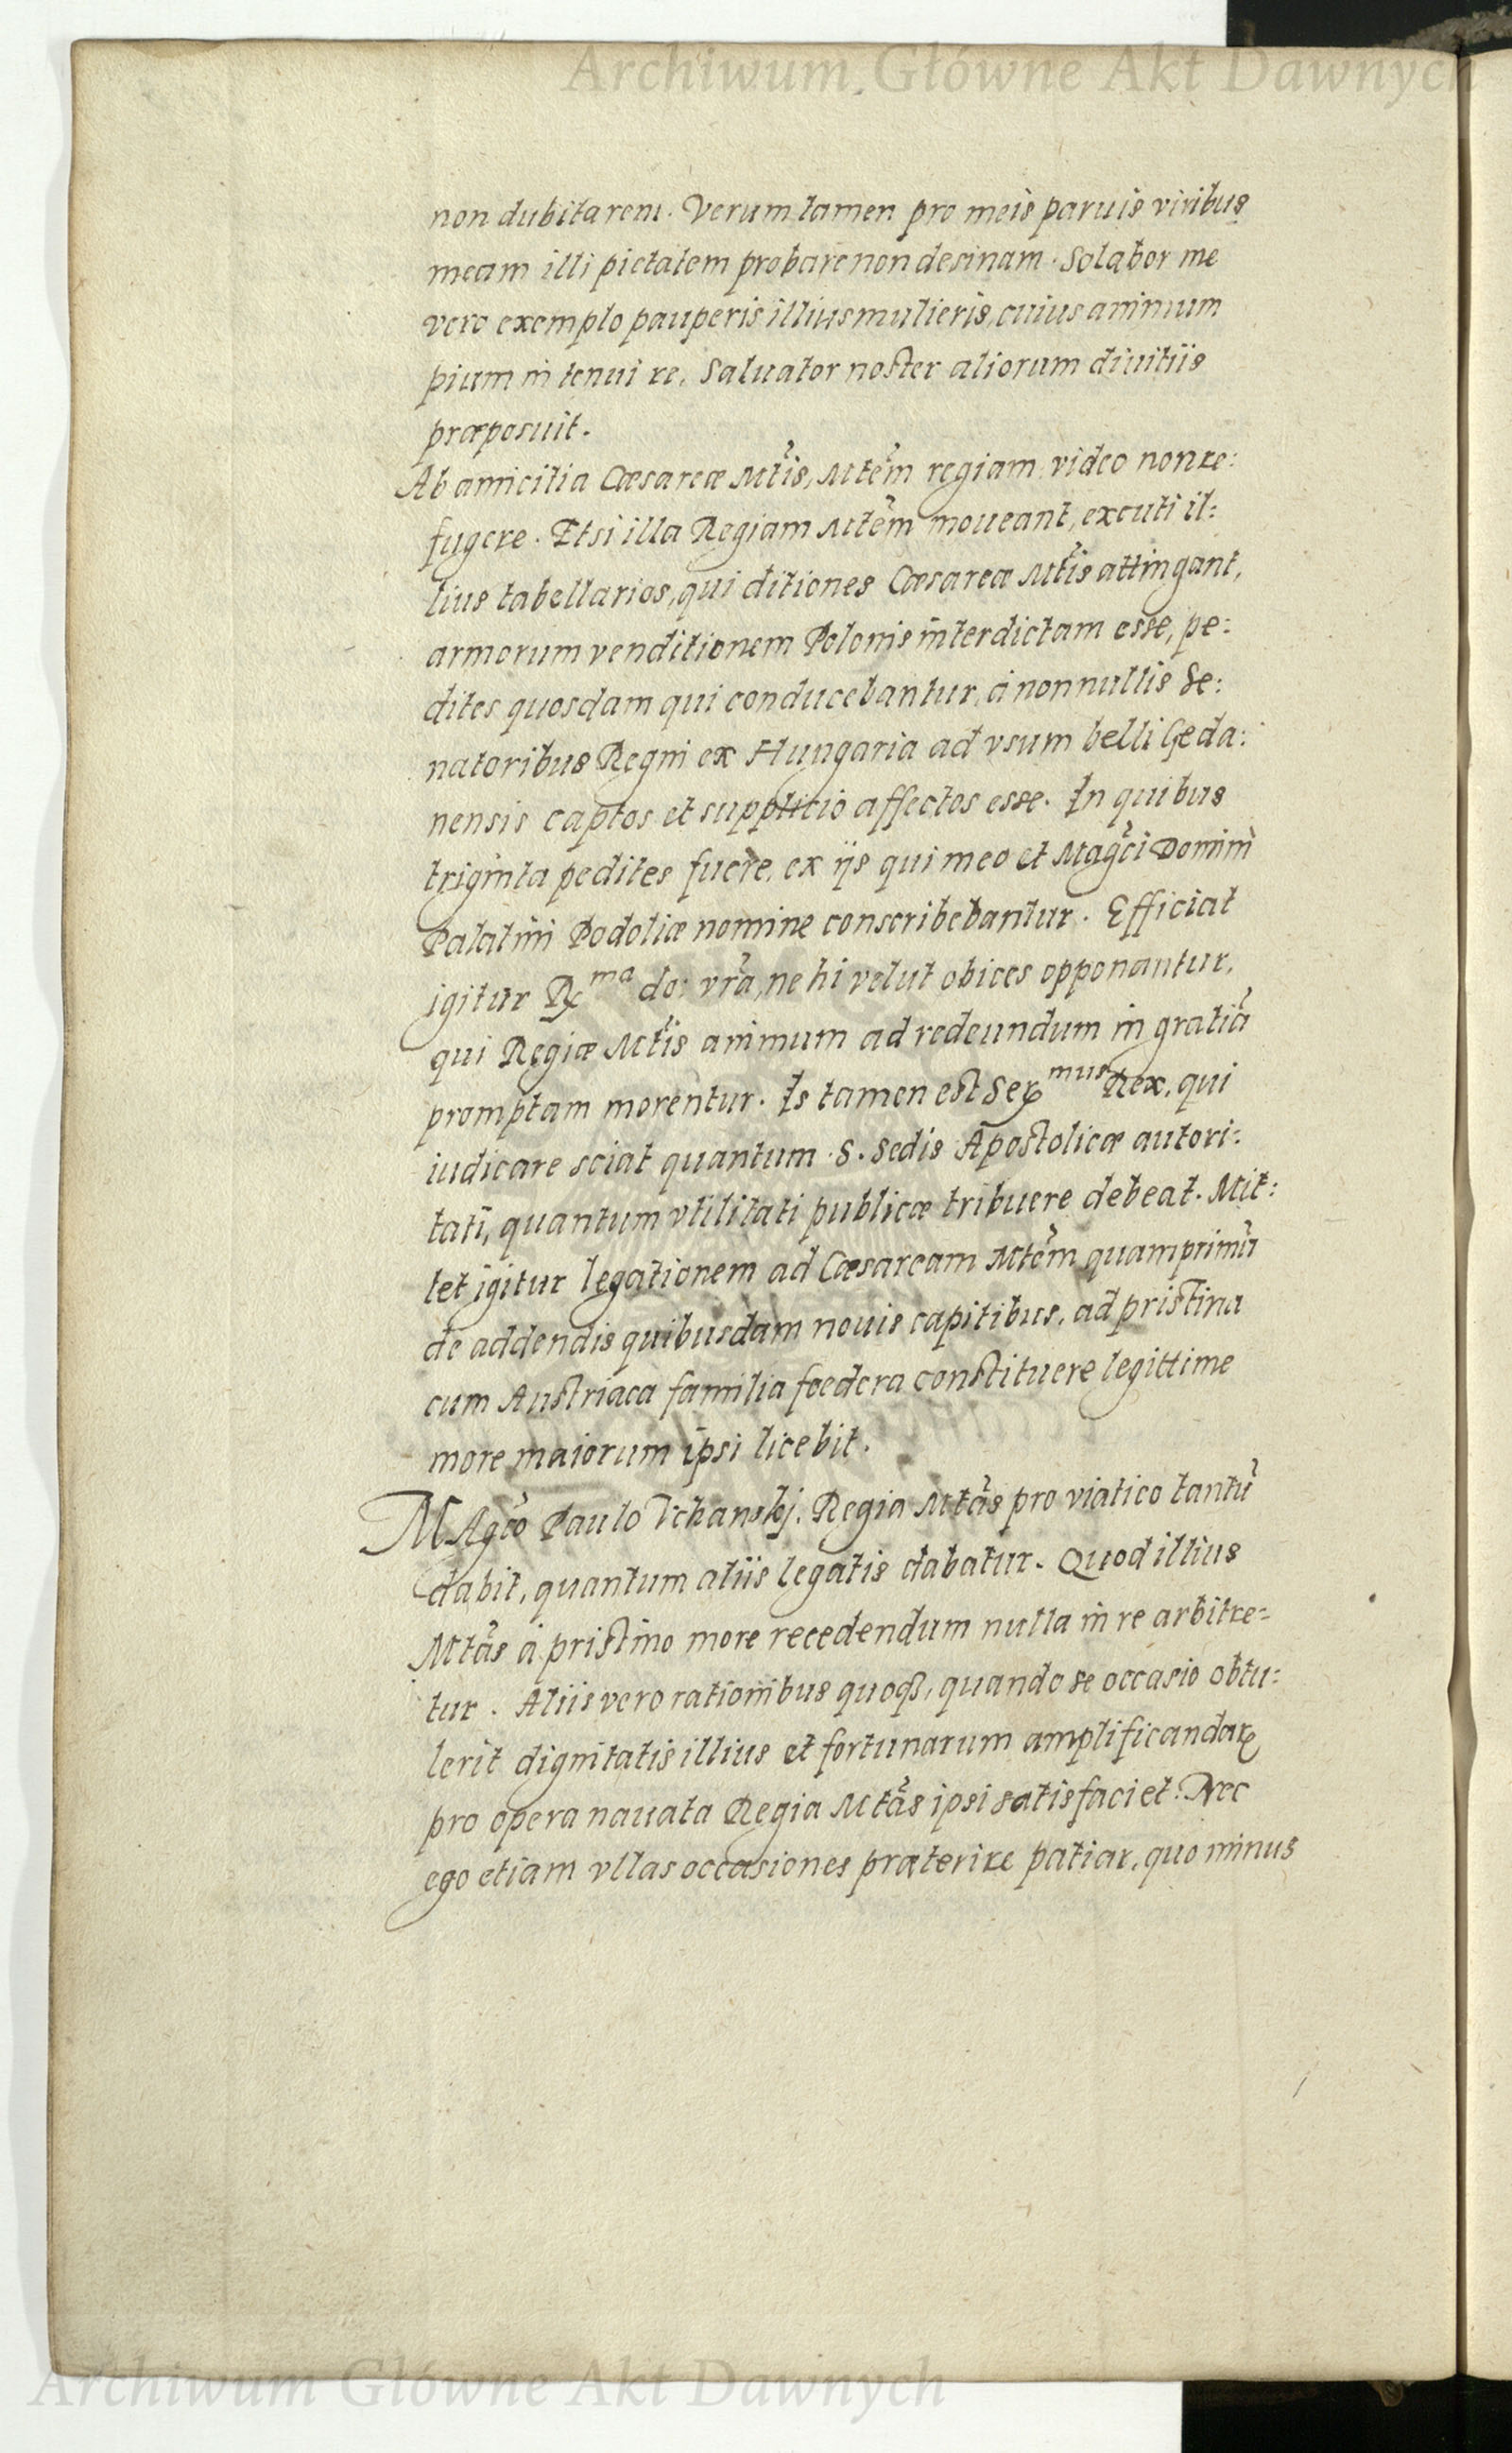 Archiwum Główne Akt Dawnych
non dubitarem. Verum tamen pro meis paruis viribus
meam illi pietatem probare non desinam. Solabor me
vero exemplo pauperis illius mulieris, cuius animum
pium in tenui re, Saluator noster aliorum diuitiis
præposuit.
Ab amicitia Cæsareæ Mtis, Mtem regiam video non re:
fugere. Etsi illa Regiam Mtem moueant, excuti il:
lius tabellarios, qui ditiones Cæsareæ Mtis attingant,
armorum venditionem Polonis interdictam esse, pe:
dites quosdam qui conducebantur, à nonnullis Se:
natoribus Regni ex Hungaria ad vsum belli Geda:
nensis captos et supplicio affectos esse. In quibus
triginta pedites fuere, ex ijs qui meo et Magci Domini
Palatini Podoliæ nomine conscribebantur. Efficiat
igitur Rma do: vra, ne hi velut obices opponantur,
qui Regiæ Mtis animum ad redeundum in gratiã
promptam morentur. Is tamen est Sermus Rex, qui
iudicare sciat quantum S. Sedis Apostolicæ autori:
tati, quantum vtilitati publicæ tribuere debeat. Mit:
tet igitur legationem ad Cæsaream Mtem quamprimũ
de addendis quibusdam nouis capitibus, ad pristina
cum Austriaca familia foedera constituere legittime
more maiorum ipsi licebit.
MAgco Paulo Vchanskj. Regia Mtas pro viatico tantũ
dabit, quantum aliis legatis dabatur. Quod illius
Mtas à pristino more recedendum nulla in re arbitre=
tur. Aliis vero rationibus quoqȝ, quando se occasio obtu:
lerit dignitatis illius et fortunarum amplificandaꝝ
pro opera nauata Regia Mtas ipsi satisfaciet. Nec
ego etiam vllas occasiones præterire patiar, quo minus
Archiwum Główne Akt Dawnych